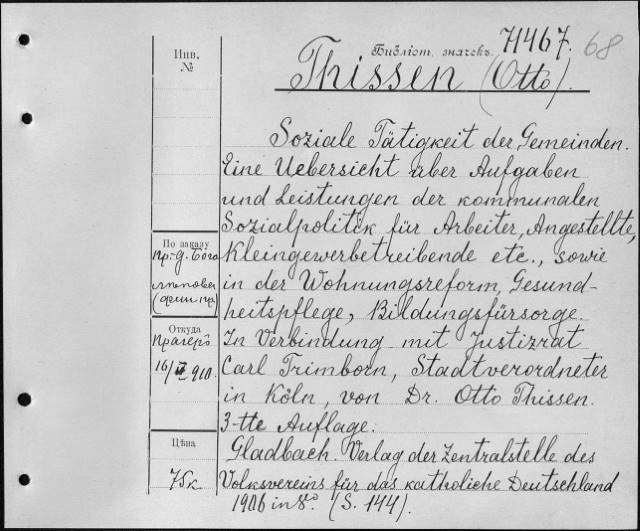 Библіот. значекъ. 71467. 68
Инв.
№
Thissen (Otto).
Soziale Tätigkeit der Gemeinden.
Eine Uebersicht über Aufgaben
und Leistungen der kommunalen
Sozialpolitik für Arbeiter, Angestellte,
По заказу
Kleingewerbetreibende etc., sowie
in der Wohnungsreform, Gesund-
heitspflege, Bildungsfürsorge.
Откуда
In Verbindung mit Justizrat
Прагеръ
Carl Trimborn, Stadtverordneter
16/II 910.
in Köln, von Dr. Otto Thissen.
3-tte Auflage.
Цѣна
Gladbach. Verlag der Zentralstelle des
75к
Volksvereins für das katholiche Deutschland
1906 in 8º. (S. 144).